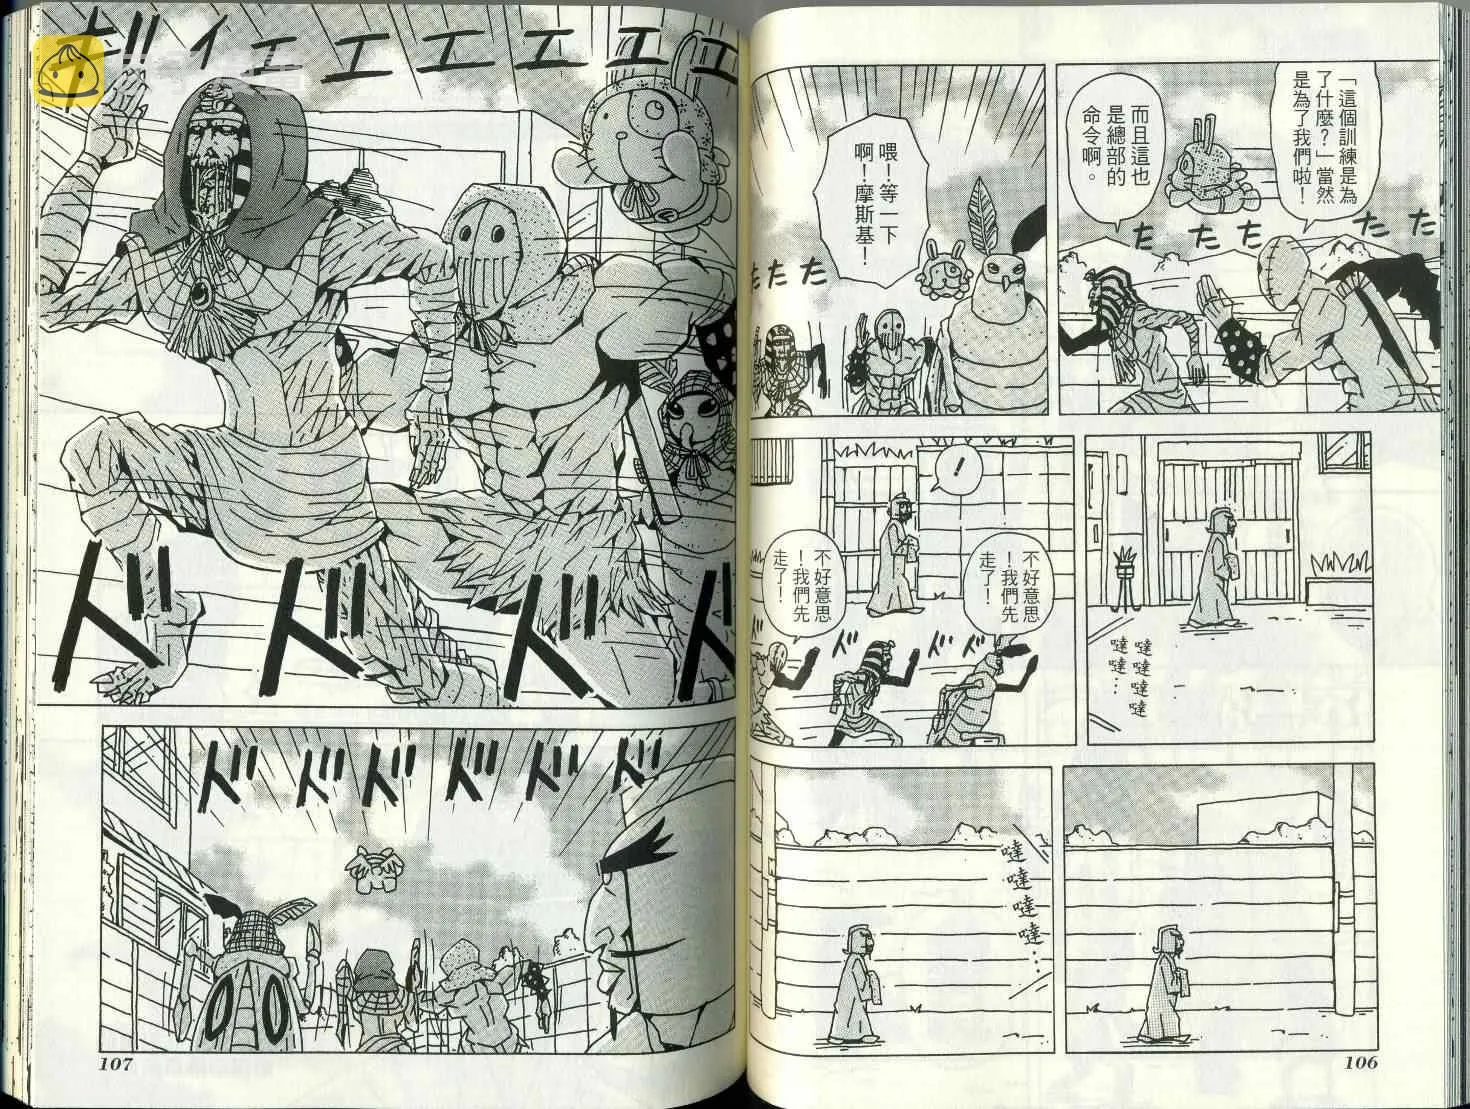 「這個訓練是為
了什麼？」當然
是為了我們啦！
而且這也
是總部的
命令啊。
たたたたた
喂！等一下
啊！摩斯基！
たたた
噠噠噠噠
噠噠…
！
不好意思
！我們先
走了！
不好意思
！我們先
走了！
ドドド
噠噠噠噠…
106
ギィエエエエエエ
ドドドド
ドドドドドド
107